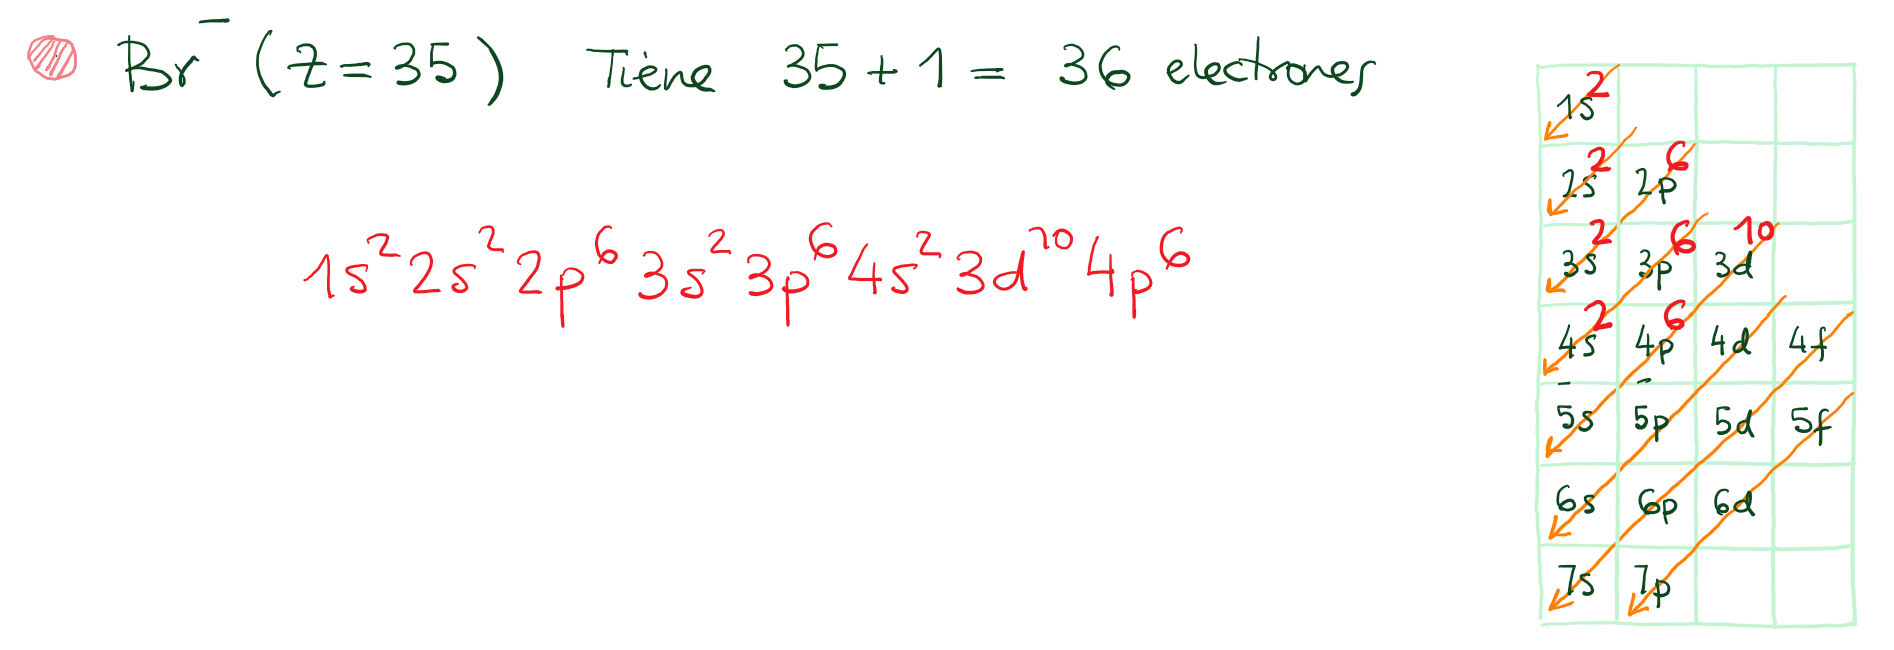 Br⁻ (Z=35) Tiene 35+1= 36 electrones
1s² 2s² 2p⁶ 3s² 3p⁶ 4s² 3d¹⁰ 4p⁶
1s²
2s² 2p⁶
3s² 3p⁶ 3d¹⁰
4s² 4p⁶ 4d 4f
5s 5p 5d 5f
6s 6p 6d
7s 7p